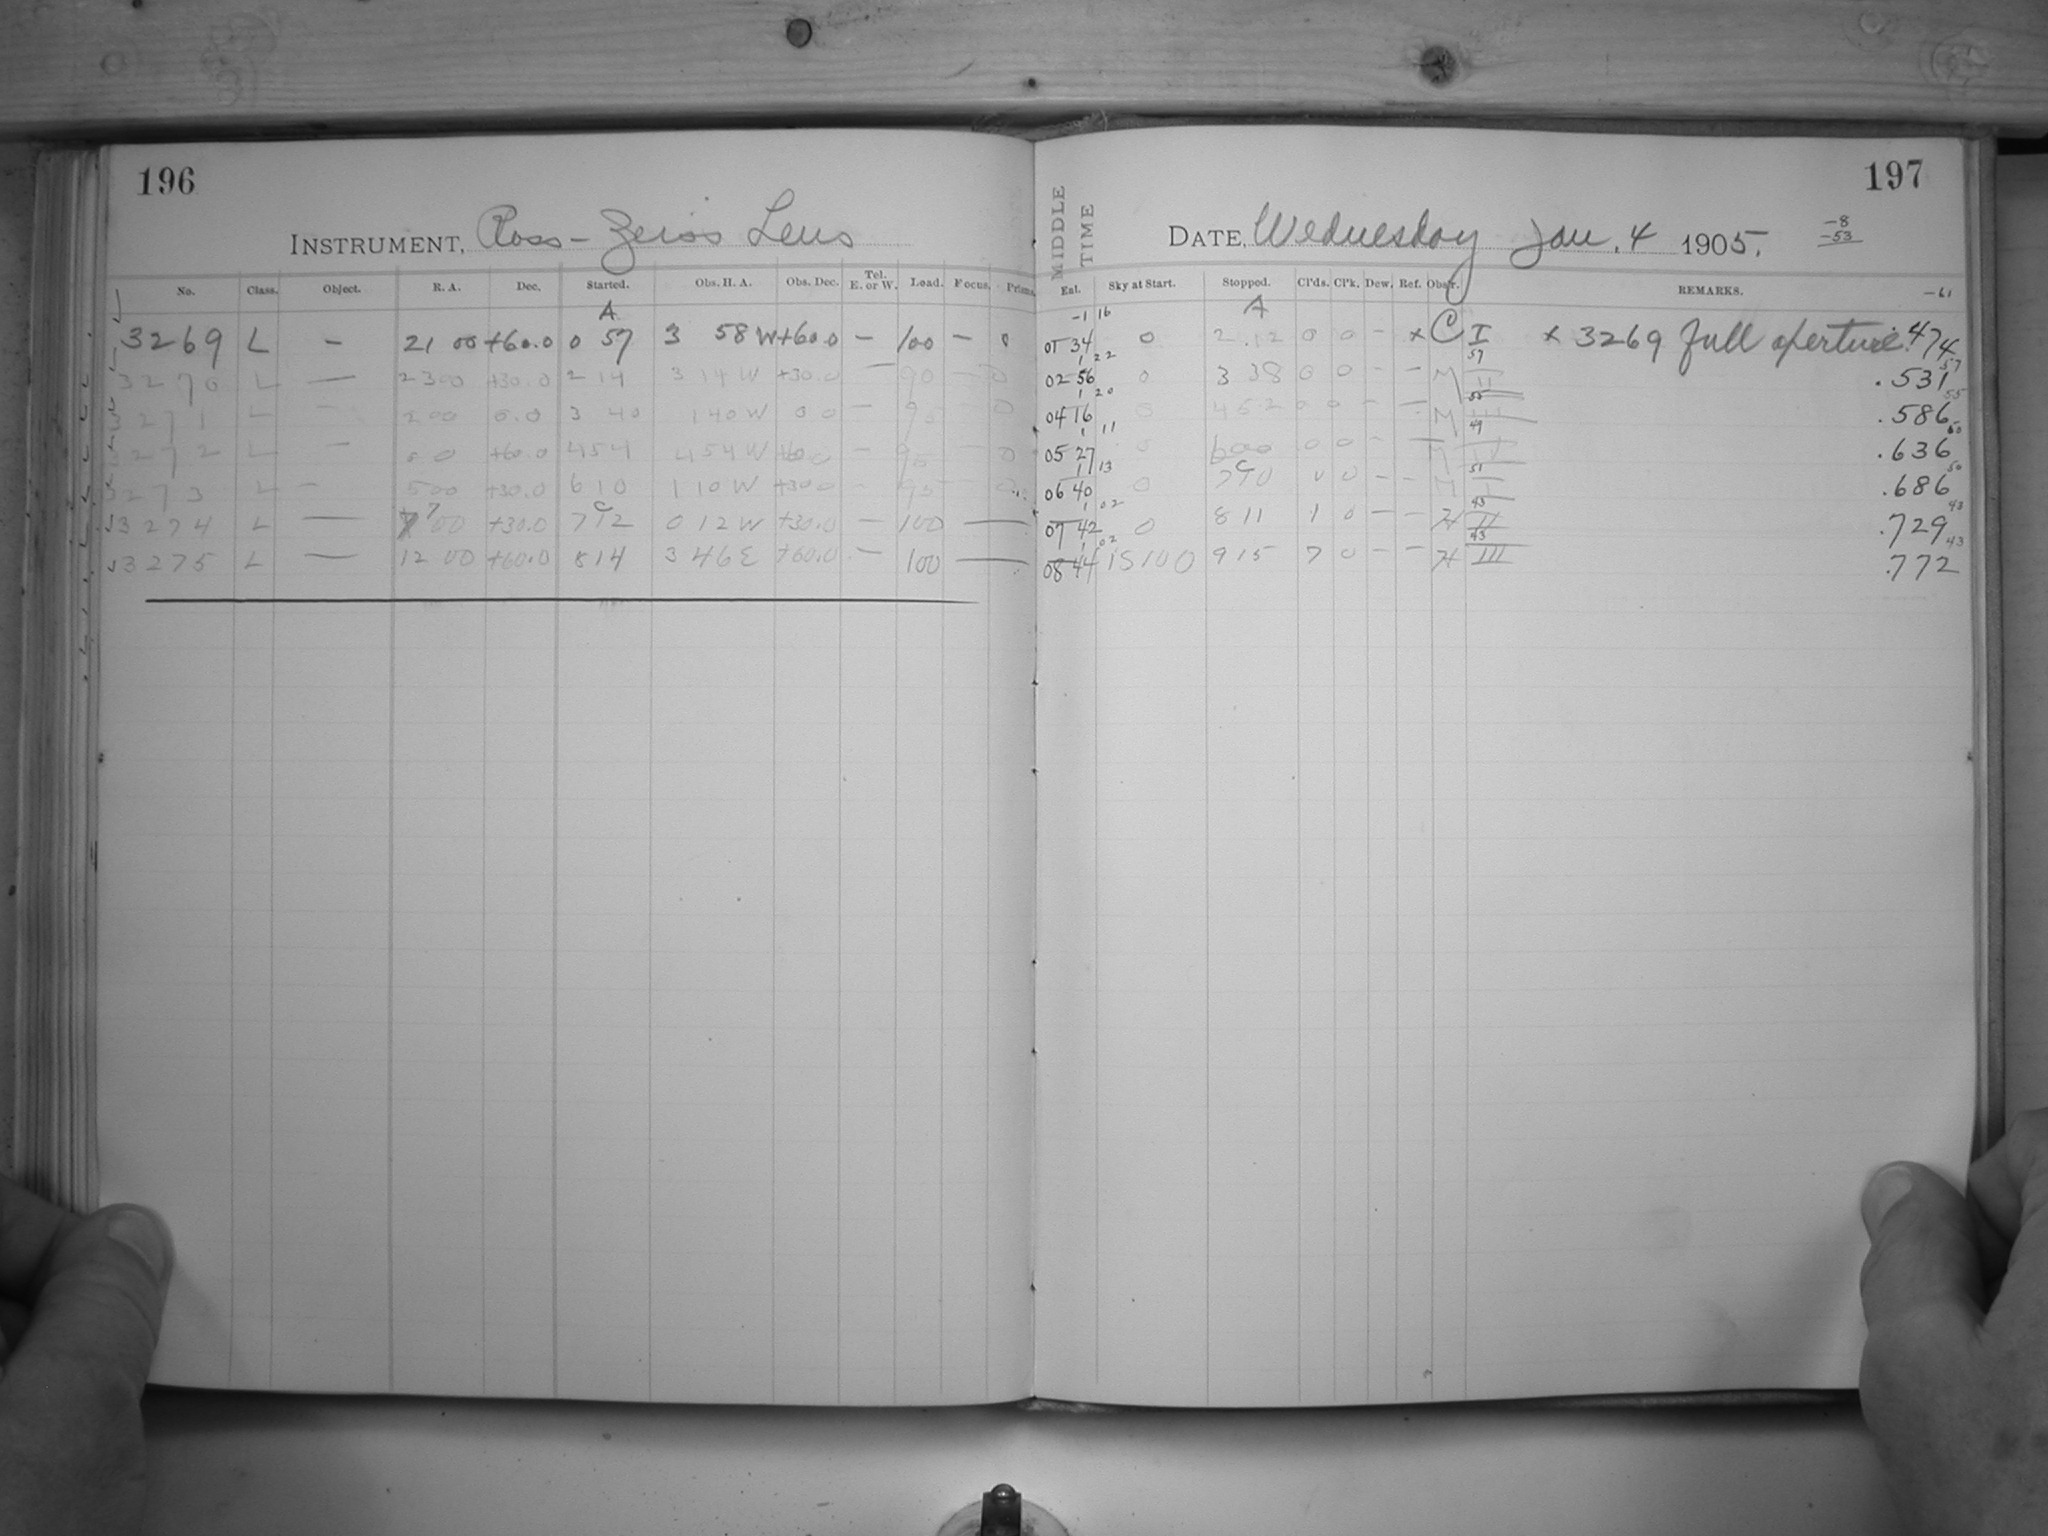 196
INSTRUMENT, Ross-Zeiss Lens
No. Class. Object. R. A. Dec. Started. Obs. H. A. Obs. Dec. Tel. E. or W. Load. Focus. Prisms.
A
3269 L — 21 00 +60.0 0 57 3 58 W +60.0 — 100 — 0
3270 L — 23 00 +30.0 2 14 3 14 W +30.0 — 90 — 0
3271 L — 0.0 3 40 1 40 W 0 0 — — 0
3272 L — +60.0 4 54 4 54 W +60.0 — — 0
3273 L — 5 00 +30.0 6 10 1 10 W +30.0 — 95 — 0
C
3274 L — 7 00 +30.0 7 12 0 12 W +30.0 — 100 —
3275 L — 12 00 +60.0 8 14 3 46 E +60.0 — 100 —
197
MIDDLE TIME
DATE, Wednesday Jan. 4 1905.
-8
-53
-61
Eat. Sky at Start. Stopped. Cl'ds. Cl'k. Dew. Ref. Obs'r. REMARKS.
-1 16 A
01 34 0 2.12 0 0 — x C I x 3269 full aperture .474
1 22 57 57
02 56 0 3 38 0 0 — — M II .531
1 20 55 55
04 16 0 4 52 0 0 — — M III .586
1 11 49 50
05 27 0 6 00 0 0 — — M .636
1 13 C 51 50
06 40 0 0 — — M I .686
1 02 43 43
07 42 0 8 11 1 0 — — H II .729
1 02 43 43
08 44 IS100 9 15 7 0 — — H III .772